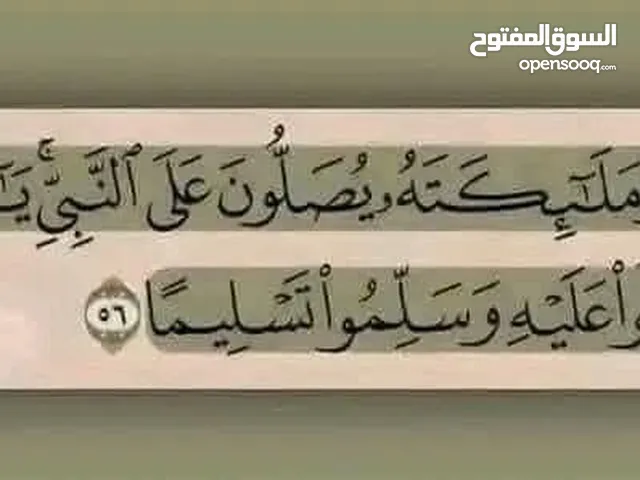 السوق المفتوح
opensooq.com
مَلَٰٓئِكَتَهُۥ يُصَلُّونَ عَلَى ٱلنَّبِيِّۚ يَٰٓ
وا۟ عَلَيْهِ وَسَلِّمُوا۟ تَسْلِيمًا ٥٦